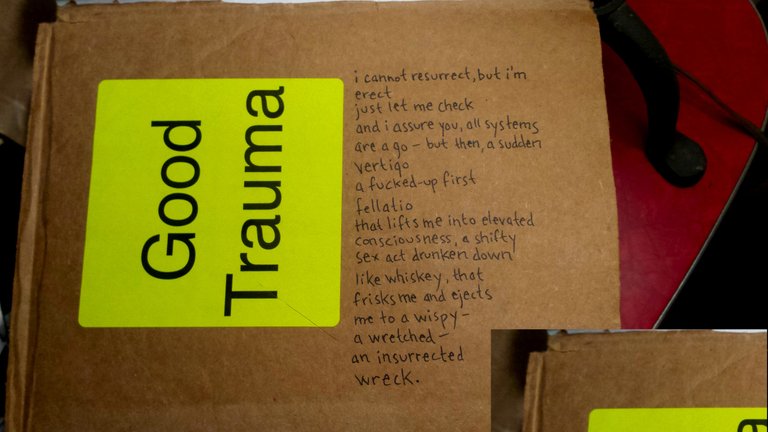 Good
Trauma
i cannot resurrect, but i'm
erect
just let me check
and i assure you, all systems
are a go – but then, a sudden
vertigo
a fucked-up first
fellatio
that lifts me into elevated
consciousness, a shifty
sex act drunken down
like whiskey, that
frisks me and ejects
me to a wispy –
a wretched –
an insurrected
wreck.
a